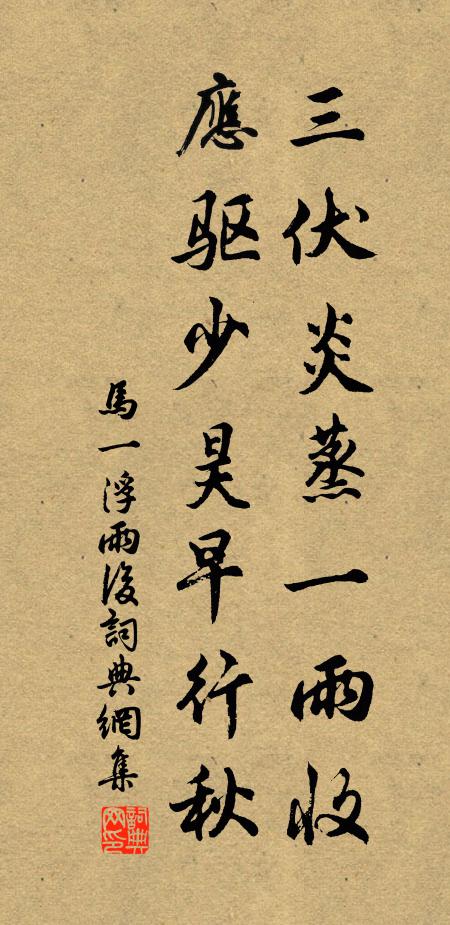 三伏炎蒸一雨收
應驱少昊早行秋
馬一浮雨後詞典網集
詞典網印